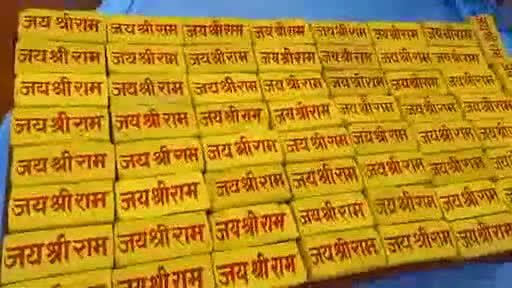 जय श्री राम जय श्री राम जय श्री राम जय श्री राम जय श्री राम जय श्री राम जय श्री राम
जय श्री राम जय श्री राम जय श्री राम जय श्री राम जय श्री राम जय श्री राम जय श्री राम
जय श्री राम जय श्री राम जय श्री राम जय श्री राम जय श्री राम जय श्री राम जय श्री राम
जय श्री राम जय श्री राम जय श्री राम जय श्री राम जय श्री राम जय श्री राम जय श्री राम
जय श्री राम जय श्री राम जय श्री राम जय श्री राम जय श्री राम जय श्री राम जय श्री राम
जय श्री राम जय श्री राम जय श्री राम जय श्री राम जय श्री राम जय श्री राम जय श्री राम
जय श्री राम जय श्री राम जय श्री राम जय श्री राम जय श्री राम जय श्री राम जय श्री राम
जय श्री राम जय श्री राम जय श्री राम जय श्री राम जय श्री राम जय श्री राम